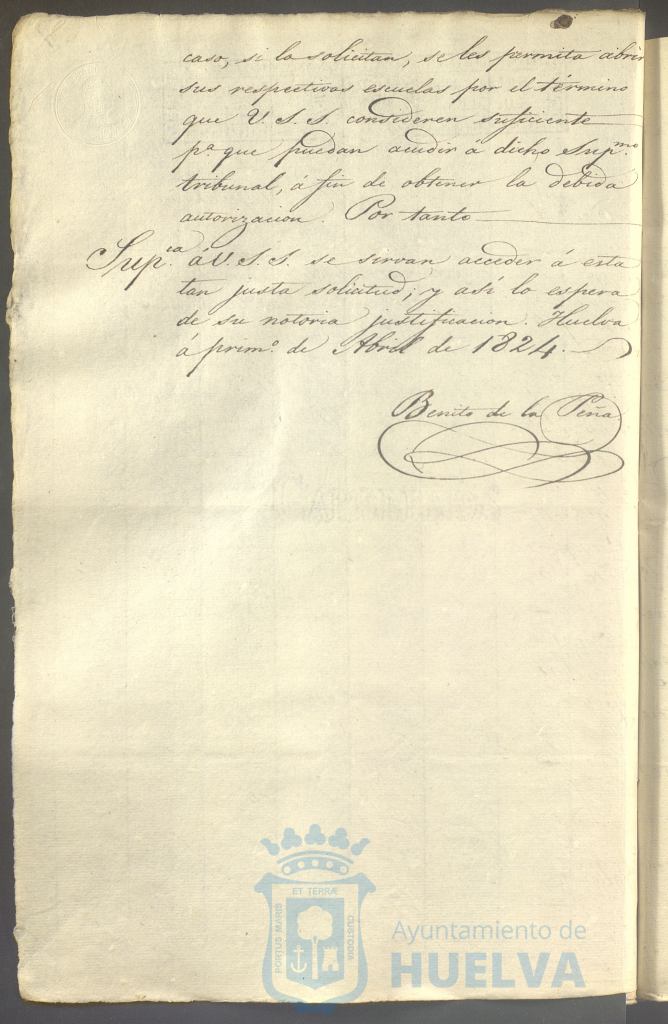 caso, si lo solicitan, se les permita abrir
sus respectivas escuelas por el término
que V. S. S. consideren suficiente
pª. que puedan acudir á dicho Supmo.
tribunal, á fin de obtener la debida
autorizacion. Por tanto
Supca. á V. S. S. se sirvan acceder á esta
tan justa solicitud; y así lo espera
de su notoria justificacion. Huelva
á primº. de Abril de 1824.
Benito de la Peña
ET TERRÆ
PORTUS MARIS
CUSTODIA
Ayuntamiento de
HUELVA